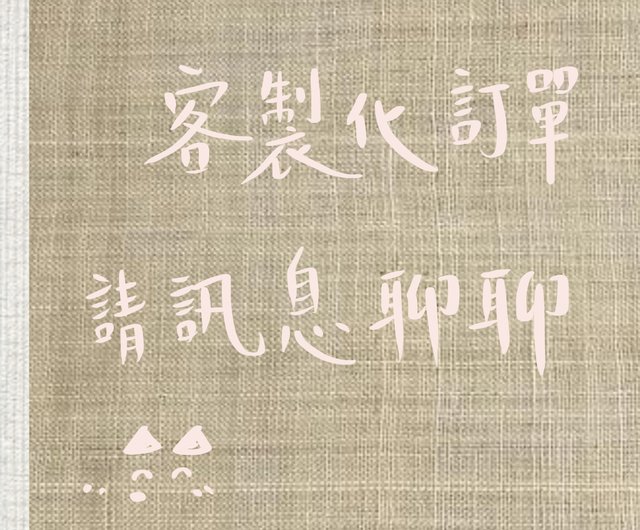 客製化訂單
請訊息聊聊